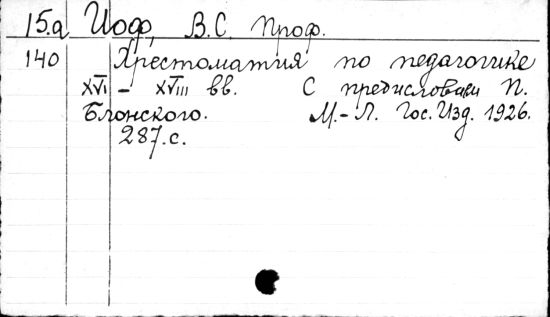 15.а Иоф, В.С. Проф.
140 Хрестоматия по педагогике
XVI – XVIII вв. С предисловием П.
Блонского. М.-Л. Гос.Изд. 1926.
287.с.